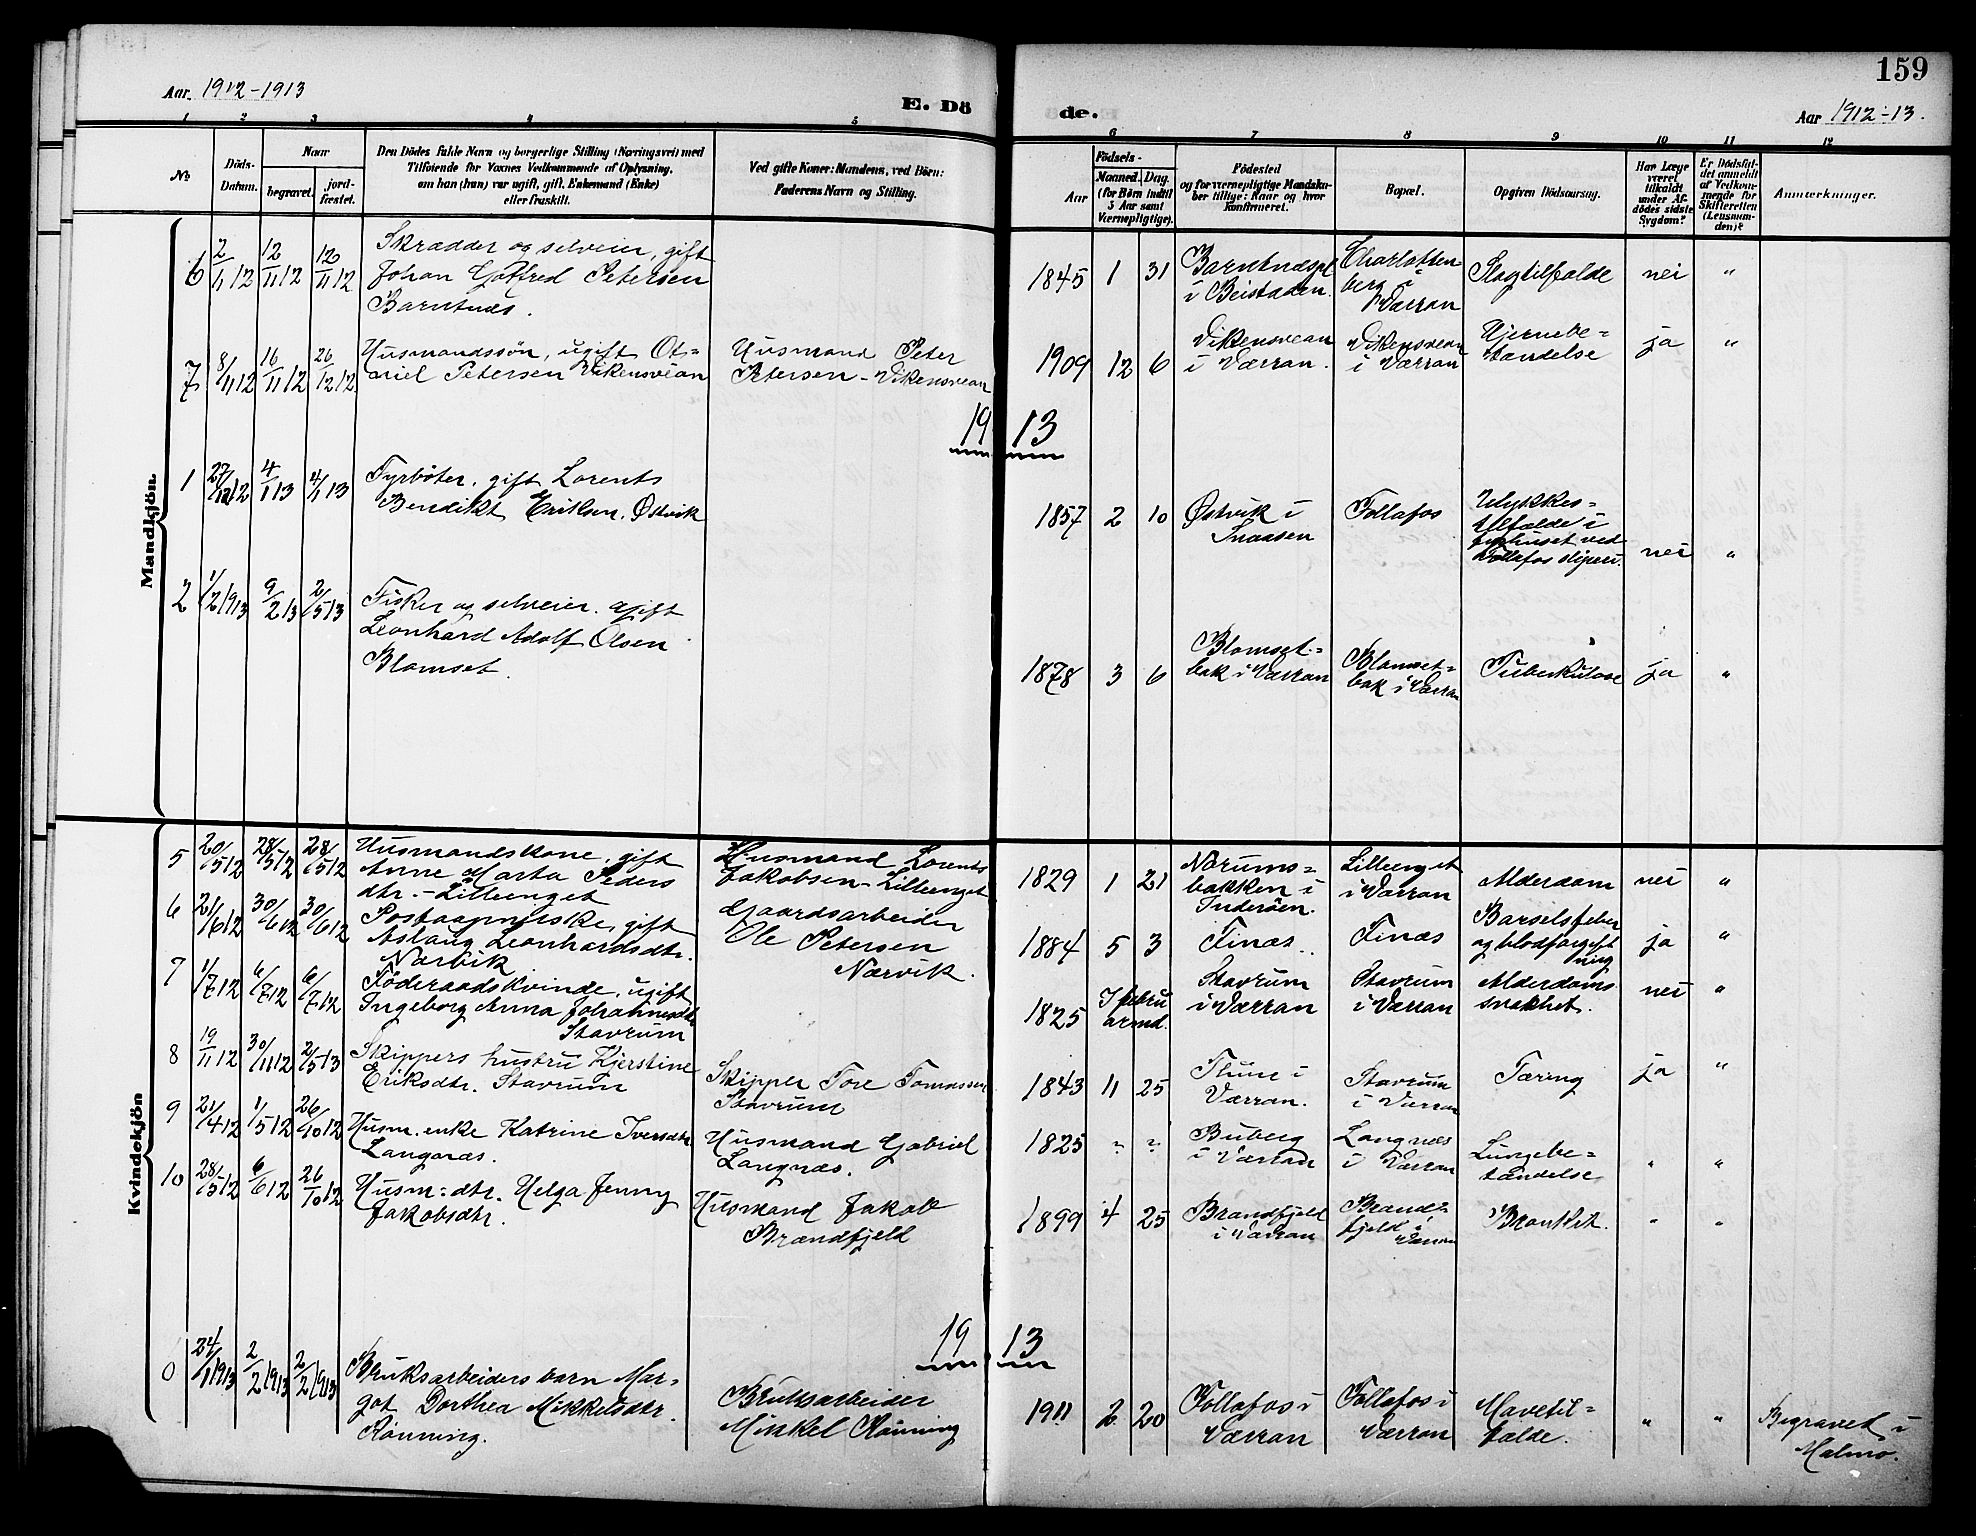 159
Aar. 1912-1913
E. Dö
de.
Aar 1912-13.
1 2 3 4 5
6 7 8 9 10 11 12
No
Döds-
Datum.
Naar
begravet.
jord-
fæstet.
Den Dödes fulde Navn og borgerlige Stilling (Næringsvei) med
Tilföiende for Voxnes Vedkommende af Oplysning,
om han (hun) var ugift, gift, Enkemand (Enke)
eller fraskilt.
Ved gifte Koner: Mandens, ved Börn:
Faderens Navn og Stilling.
Födsels-
Aar
Maaned. Dag.
(for Börn indtil
5 Aar samt
Værnepligtige).
Födested
og for værnepligtige Mandska-
ber tillige: Naar og hvor
konfirmeret.
Bopæl.
Opgiven Dödsaarsag.
Har Læge
været
tilkaldt
under Af-
dödes sidste
Sygdom?
Er Dödsfal-
det anmeldt
af Vedkom-
mende for
Skifteretten
(Lensman-
den)?
Anmærkninger.
Mandkjön.
6 2/11 12 12/11 12 12/11 12
Skrædder og selveier, gift
Johan Gotfred Petersen
Barntnæs.
1845 1 31
i Beistaden.
Charlotten-
berg i
Værran
Slagtilfælde
nei "
7 8/11 12 16/11 12 26/12 12
Husmandssön, ugift Ot-
ariel Petersen Vikensvean
Husmand Peter
Petersen - Vikensvean
1909 12 6
Vikensvean
i Værran.
Vikensvean
i Værran
Hjernebe-
tændelse
ja "
1913
1 27/12 12 4/1 13 4/1 13
Fyrböter, gift Lorents
Bendikt Eriksen. Østvik
1857 2 10
Østvik i
Snaasen
Follafos
Ulykkes-
tilfælde i
ved
Follafos sliperi.
nei "
2 1/2 1913 9/2 13 2/5 13
Fisker og selveier. gift
Leonhard Adolf Olsen
Blomset.
1878 3 6
Blomset-
bak i Værran
Blomset-
bak i Værran
Tuberkulose
ja "
Kvindekjön
5 20/5 12 28/5 12 28/5 12
Husmandskone, gift
Anne Marta Peders
dtr. - Lilleenget
Husmand Lorents
Jakobsen - Lilleenget
1829 1 21
Nørums-
bakken i
Inderöen.
Lilleenget
i Værran
Alderdom
nei "
6 21/6 12 30/6 12 30/6 12
Postaapnerske, gift
Aslaug Leonhardsdtr.
Narvik
Gaardsarbeider
Ole Petersen
Nærvik.
1884 5 3
Finæs.
Finæs
Barselsfeber
og blodforgift
ning
ja "
7 1/7 12 6/7 12 6/7 12
Föderaadskvinde, ugift
Ingeborg Anna Johannesdtr
Stavrum
1825 I febru
armd.
Stavrum
i Værran
Stavrum
i Værran
Alderdoms
svakhet.
nei "
8 19/11 12 30/11 12 2/5 13
Skippers hustru Kjerstine
Eriksdtr. Stavrum
Skipper Tore Tomassen
Stavrum
1843 11 25
Værran.
Stavrum
i Værran
Tæring
ja "
9 21/4 12 1/5 12 26/10 12
Husm. enke Katrine Iversdtr
Langnæs.
Husmand Gabriel
Langnæs.
1825 " "
Buberg
i Værran
Langnæs
i Værran
Lungebe-
tændelse
" "
10 28/5 12 6/6 12 26/10 12
Husm:dtr. Helga Jenny
Jakobsdtr.
Husmand Jakob
Brandfjeld
1899 4 25
Brandfjeld
i Værran
Brand-
fjeld i
Værran
Bronkit.
" "
1913
24/1 1913 2/2 1913 2/2 1913
Bruksarbeiders barn Mar-
got Dorthea Mikkelsdtr.
Rönning.
Bruksarbeider
Mikkel Rönning
1911 2 20
Follafos i
Værran
Follafos i
Værran
Mavetil-
fælde.
" "
Begravet i
Malmo.